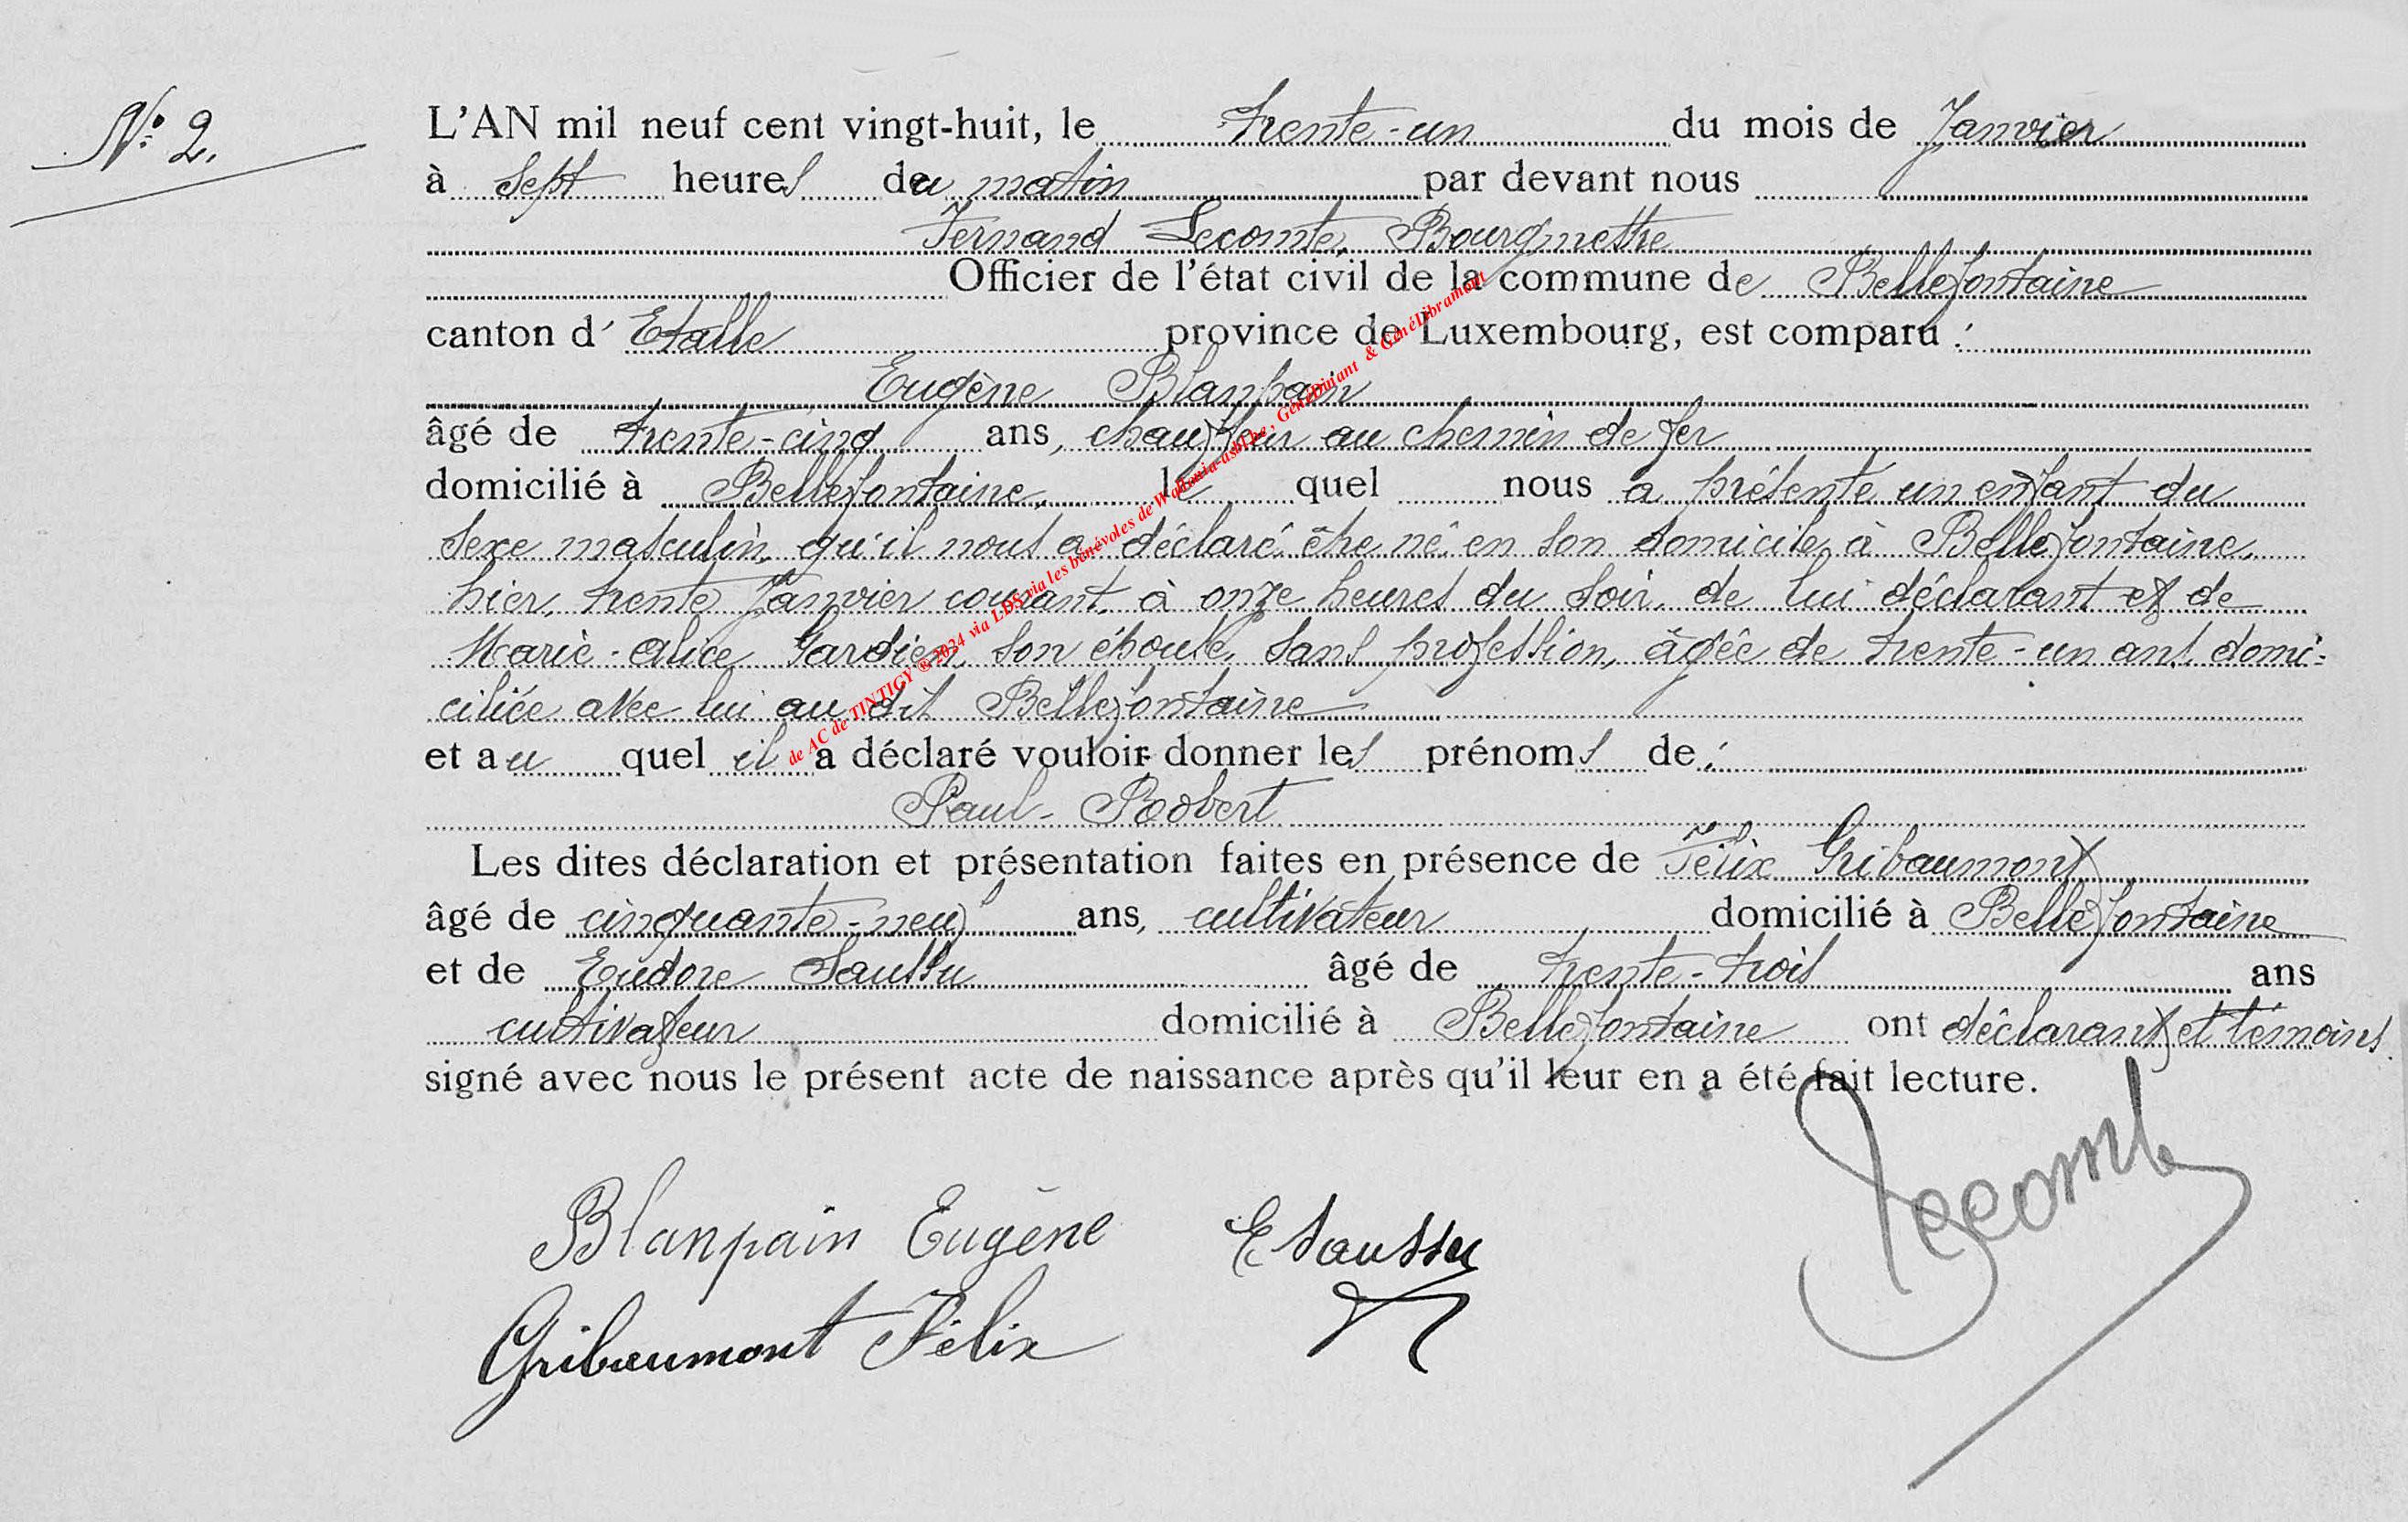 N° 2.
L'AN mil neuf cent vingt-huit, le trente-un du mois de Janvier
à sept heures du matin par devant nous
Fernand Lecomte, Bourgmestre
Officier de l'état civil de la commune de Bellefontaine
canton d' Etalle province de Luxembourg, est comparu :
Eugène Blanpain
âgé de trente-cinq ans, chauffeur au chemin de fer
domicilié à Bellefontaine, le quel nous a présenté un enfant du
sexe masculin, qu'il nous a déclaré être né en son domicile, à Bellefontaine,
hier, trente Janvier courant, à onze heures du soir, de lui déclarant et de
Marie-Alice Gardien, son épouse, sans profession, âgée de trente-un ans, domi-
ciliée avec lui au dit Bellefontaine
et au quel il a déclaré vouloir donner les prénoms de :
Paul-Robert
Les dites déclaration et présentation faites en présence de Félix Gribaumont
âgé de cinquante-neuf ans, cultivateur domicilié à Bellefontaine
et de Eudore Saussu âgé de trente-trois ans
cultivateur domicilié à Bellefontaine ont déclarant et témoins
signé avec nous le présent acte de naissance après qu'il leur en a été fait lecture.
Blanpain Eugène E Saussu Lecomte
Gribaumont Félix
de AC de TINTIGY ® 2024 via LDS via les bénévoles de Wallonia-asbl.be, GénéDinant & GénéLibramont